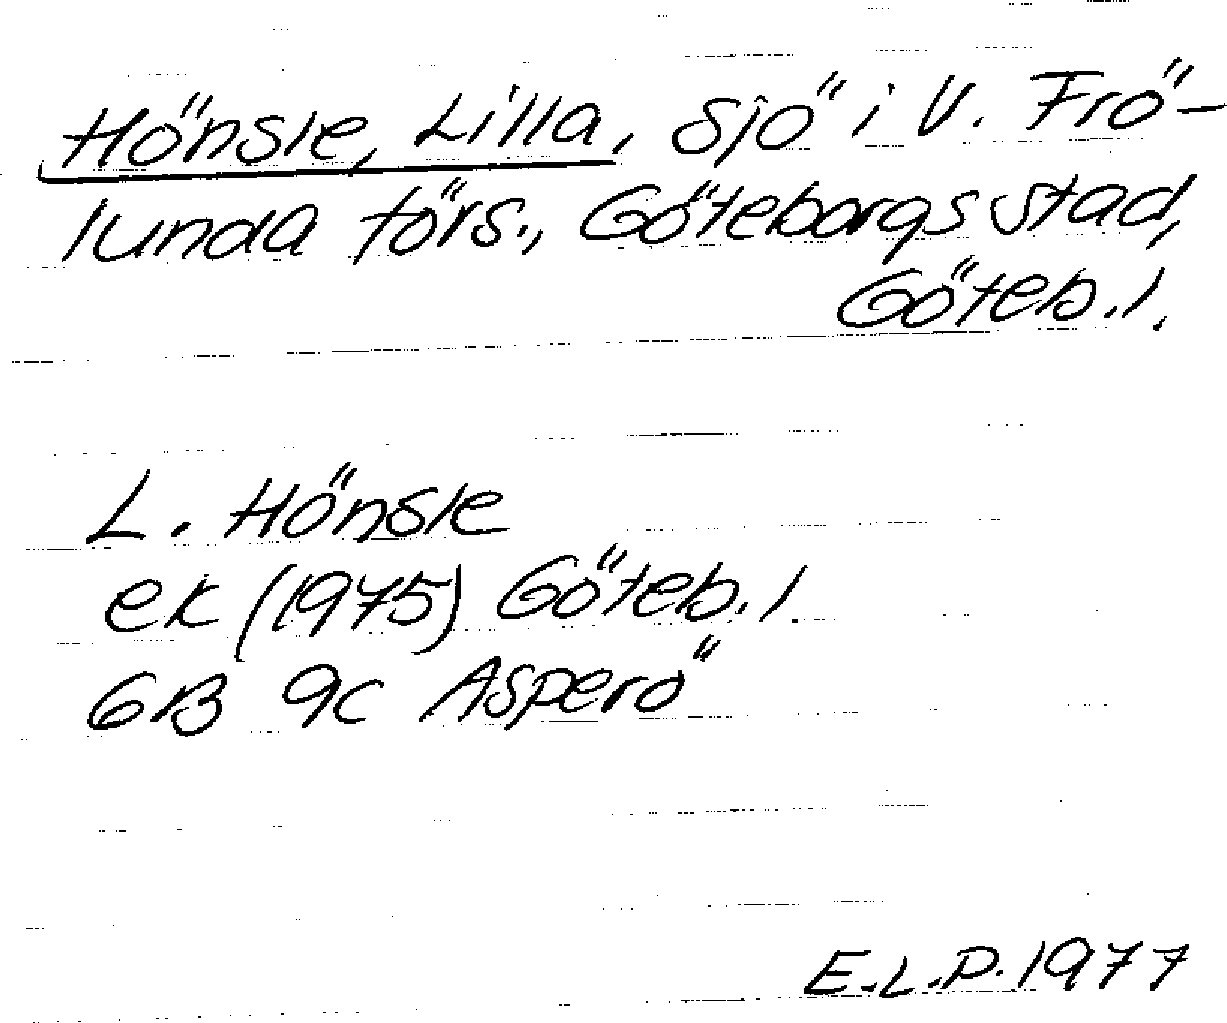 Hönsle, Lilla, sjö i V. Frö-
lunda förs., Göteborgs stad,
Göteb. l.
L. Hönsle
ek (1975) Göteb. l.
6B 9c Asperö
E.L.P. 1977